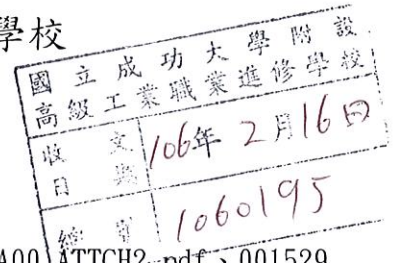 學校
國立成功大學附設
高級工業職業進修學校
收文
日期
106年2月16日
總號
1060195
A00_ATTCH2.pdf、001529